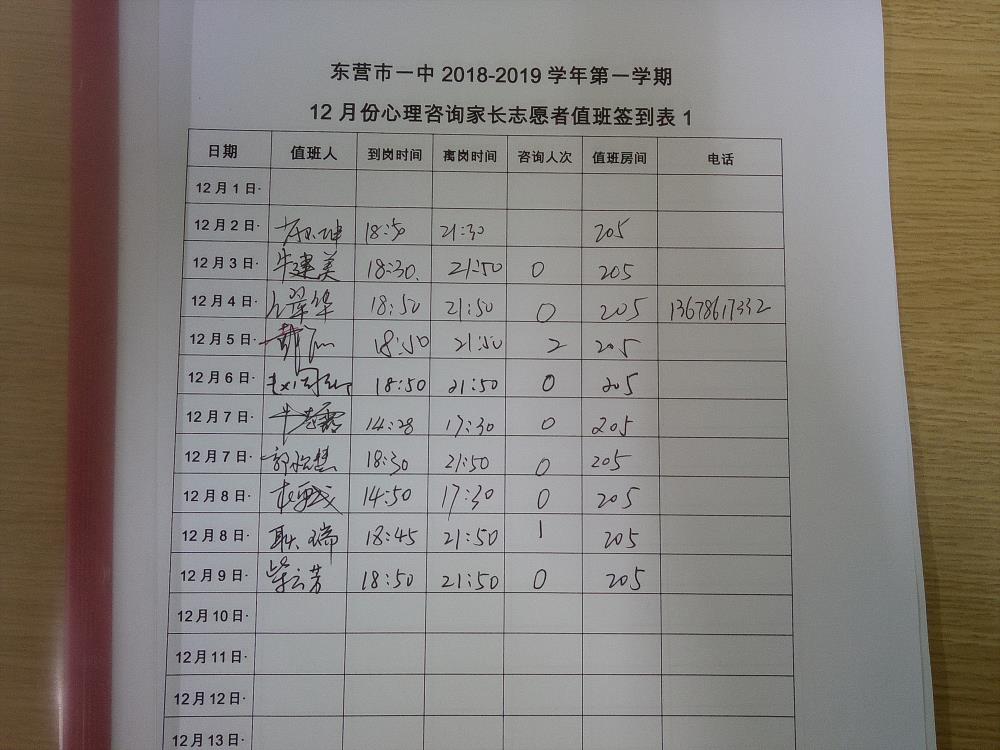 东营市一中 2018-2019 学年第一学期
12 月份心理咨询家长志愿者值班签到表 1
日期 值班人 到岗时间 离岗时间 咨询人次 值班房间 电话
12 月 1 日·
12 月 2 日· 18:50 21:30 205
12 月 3 日· 牛建美 18:30. 21:50 0 205
12 月 4 日· 18:50 21:50 0 205 13678617332
12 月 5 日· 18:50 21:50 2 205
12 月 6 日· 18:50 21:50 0 205
12 月 7 日· 14:28 17:30 0 205
12 月 7 日· 18:30 21:50 0 205
12 月 8 日· 14:50 17:30 0 205
12 月 8 日· 耿瑞 18:45 21:50 1 205
12 月 9 日· 柴云芳 18:50 21:50 0 205
12 月 10 日·
12 月 11 日·
12 月 12 日·
12 月 13 日·